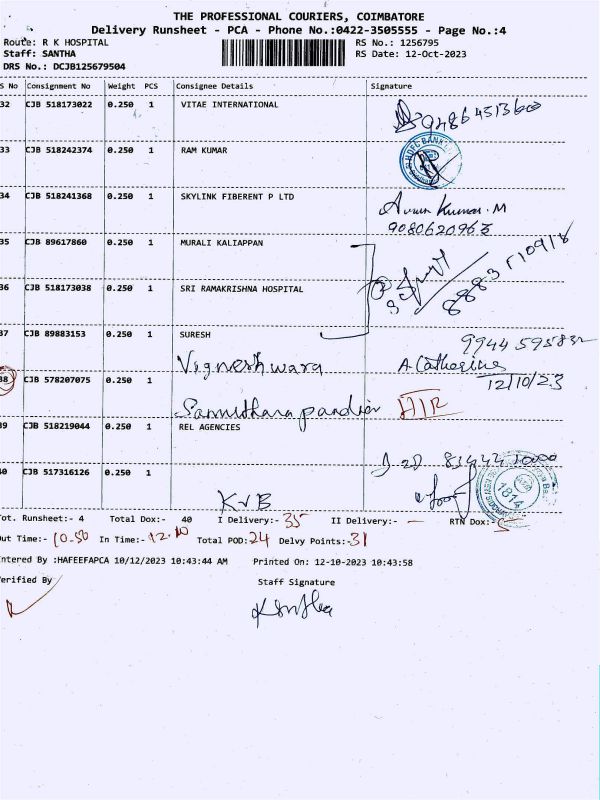 THE PROFESSIONAL COURIERS, COIMBATORE
Delivery Runsheet - PCA - Phone No.:0422-3505555 - Page No.:4
Route: R K HOSPITAL
RS No.: 1256795
Staff: SANTHA
RS Date: 12-Oct-2023
DRS No.: DCJB125679504
S No Consignment No Weight PCS Consignee Details Signature
32 CJB 518173022 0.250 1 VITAE INTERNATIONAL
9486451360
33 CJB 518242374 0.250 1 RAM KUMAR
HDFC BANK
34 CJB 518241368 0.250 1 SKYLINK FIBERENT P LTD
Arun Kumar. M
9080620963
35 CJB 89617860 0.250 1 MURALI KALIAPPAN
36 CJB 518173038 0.250 1 SRI RAMAKRISHNA HOSPITAL
37 CJB 89883153 0.250 1 SURESH
Vigneshwara
A. Catherine
12/10/23
38 CJB 578207075 0.250 1
39 CJB 518219044 0.250 1 REL AGENCIES
40 CJB 517316126 0.250 1
KVB
1814
Tot. Runsheet:- 4 Total Dox:- 40 I Delivery:- 35 II Delivery:- — RTN Dox:- 5
Out Time:- 10.50 In Time:- 12.10 Total POD:- 24 Delvy Points:- 31
Entered By :HAFEEFAPCA 10/12/2023 10:43:44 AM Printed On: 12-10-2023 10:43:58
Verified By Staff Signature